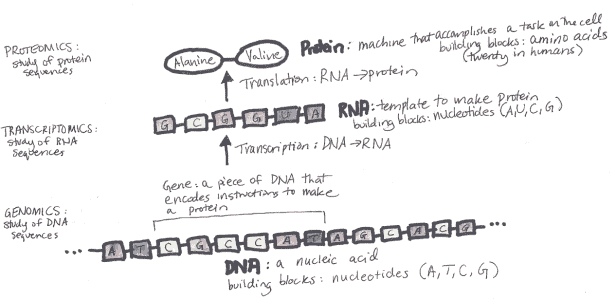 PROTEOMICS:
study of protein
sequences
Alanine Valine
Protein: machine that accomplishes a task in the cell
building blocks: amino acids
(twenty in humans)
Translation: RNA → protein
TRANSCRIPTOMICS:
study of RNA
sequences
G C G G U A
RNA: template to make protein
building blocks: nucleotides (A, U, C, G)
Transcription: DNA → RNA
Gene: a piece of DNA that
encodes instructions to make
a protein
GENOMICS:
study of DNA
sequences
... A T C G C C A T A G C A C G ...
DNA: a nucleic acid
building blocks: nucleotides (A, T, C, G)